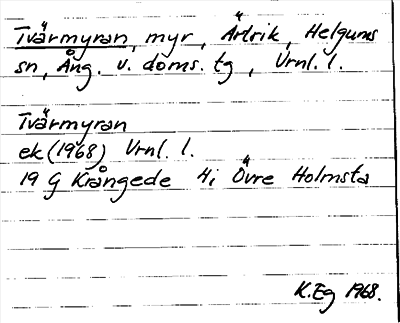 Tvärmyran, myr, Ärtrik, Helgums
sn, Ång. v. doms. tg, Vrnl. l.
Tvärmyran
ek (1968) Vrnl. l.
19 G Krångede 4i Övre Holmsta
K.Eg 1968.